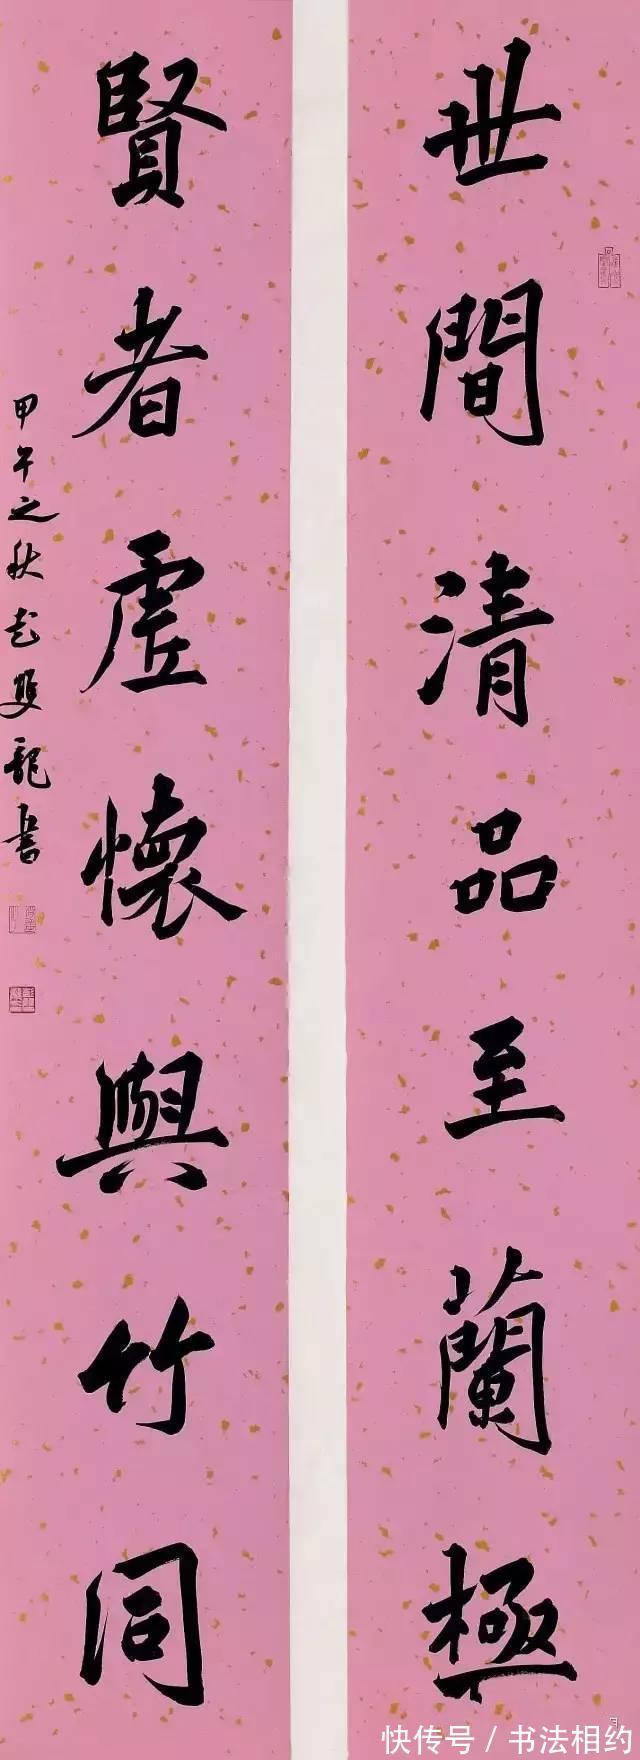 世間清品至蘭極
賢者虛懷與竹同
甲午之秋
雙龍書
快传号 / 书法相约